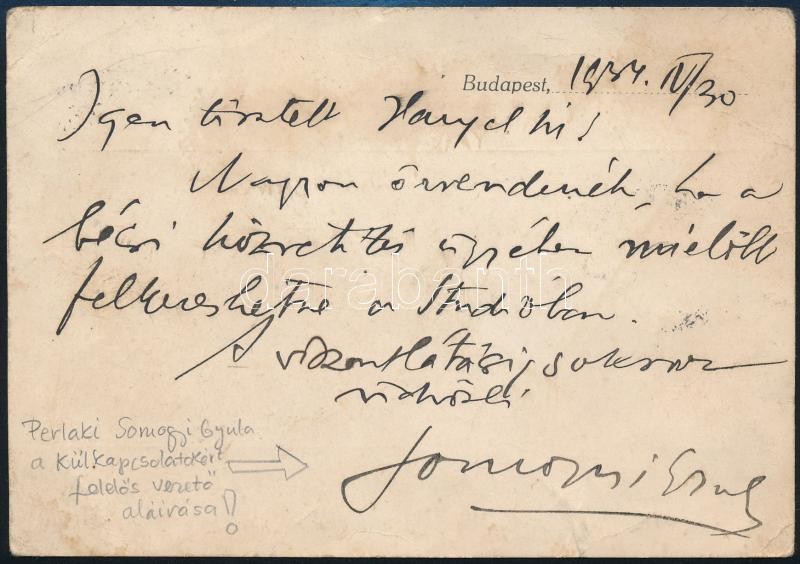 Budapest, 1934. IV/30
Igen tisztelt
Nagyon örvendenék, ha a
bécsi közvetítés ügyében mielőbb
felkereshetne a Studióban.
A viszontlátásig sokszor
üdvözli
Somogyi Gyula
Perlaki Somogyi Gyula
a külkapcsolatokért
felelős vezető
aláírása!
darabanth